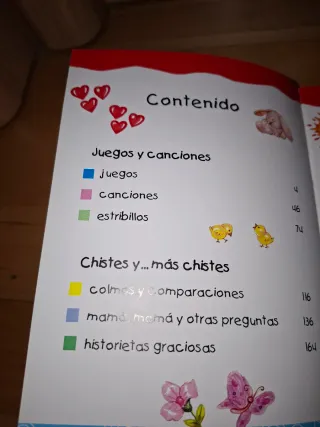 Contenido
Juegos y canciones
juegos 4
canciones 46
estribillos 74
Chistes y... más chistes
colmos y comparaciones 116
mamá, mamá y otras preguntas 136
historietas graciosas 164